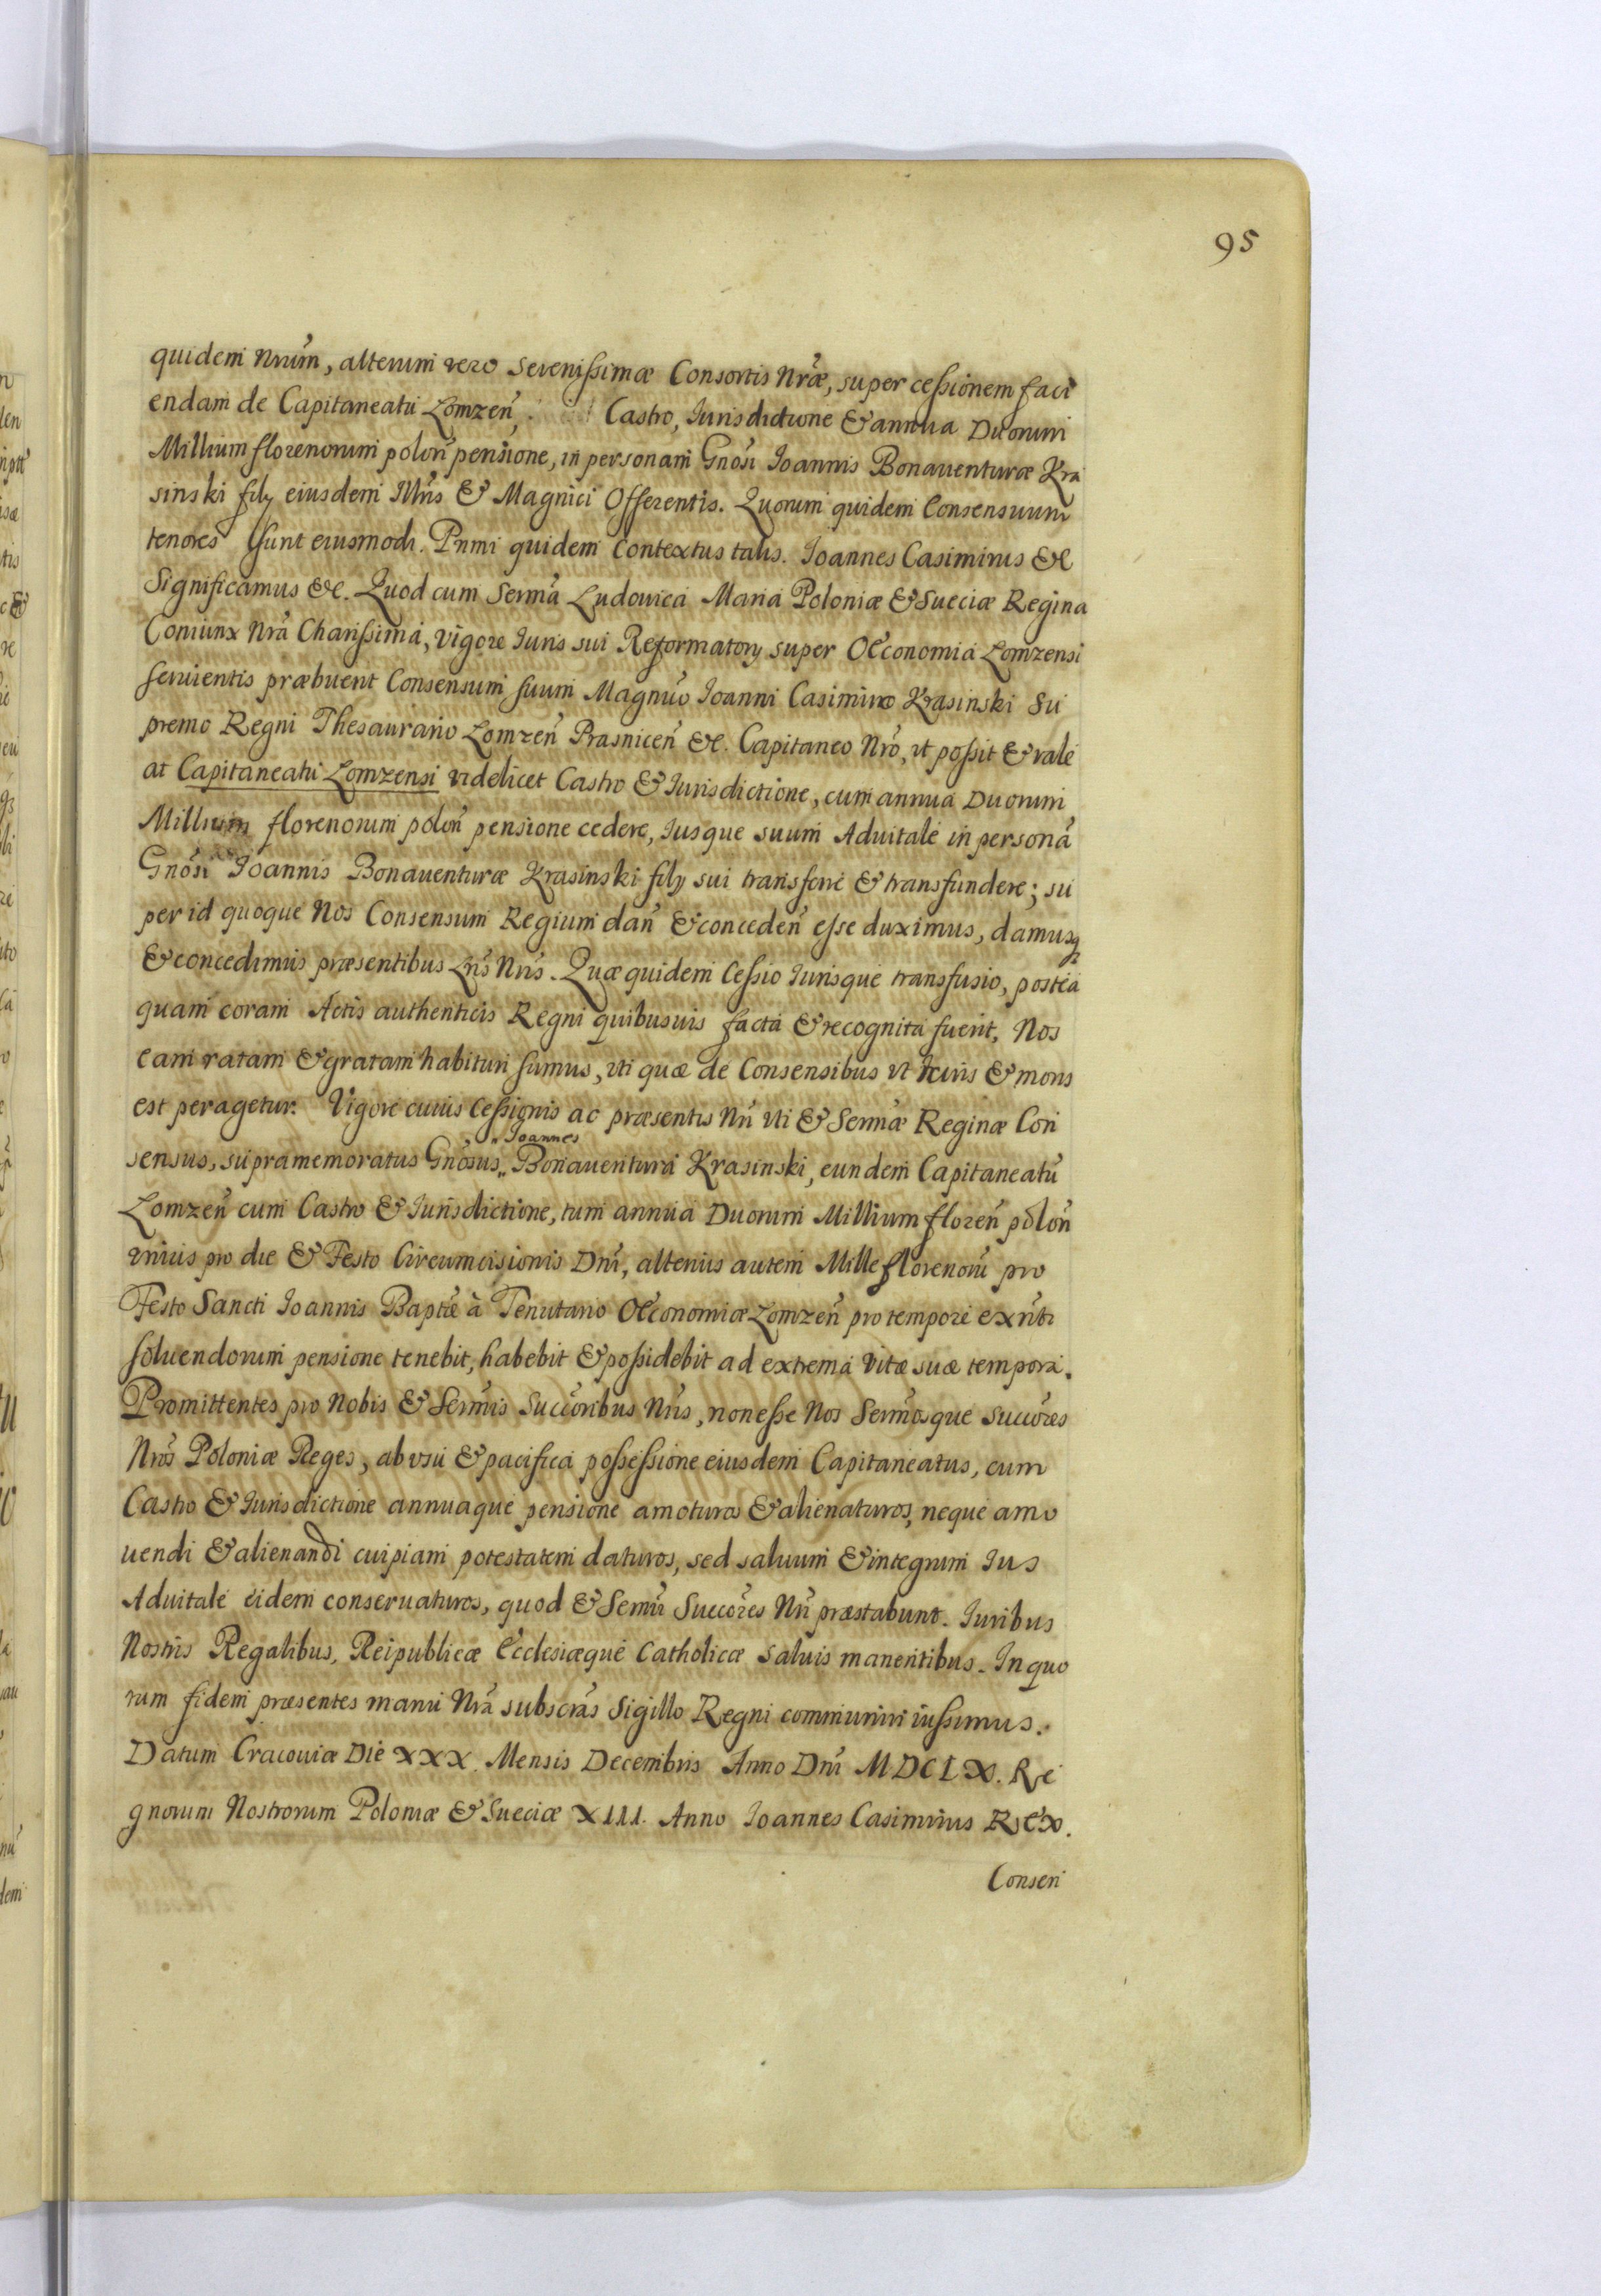 95
quidem Nrum, alterum vero Serenissimæ Consortis Nræ, super cessionem faci
endam de Capitaneatu Lomzen, Castro, Iurisdictione & annua Duorum
Millium florenorum polon pensione, in personam Gnosi Ioannis Bonauenturæ Kra
sinski filÿ eiusdem Illris & Magnici Offerentis. Quorum quidem Consensuum
tenores Sunt eiusmodi. Primi quidem Contextus talis. Ioannes Casimirus &c
Significamus &c. Quod cum Serma Ludouica Maria Poloniæ & Sueciæ Regina
Coniunx Nra Charissima, vigore Iuris sui Reformatorÿ super Oeconomia Lomzensi
seruientis præbuerit Consensum suum Magnco Ioanni Casimiro Krasinski Su
premo Regni Thesaurario Lomzen Prasnicen &c. Capitaneo Nro, vt possit & vale
at Capitaneatu Lomzensi videlicet Castro & Iurisdictione, cum annua Duorum
Millium florenorum polon pensione cedere, Iusque suum Aduitale in personã
Gnosi Ioannis Bonauenturæ Krasinski filÿ sui transferre & transfundere; su
per id quoque Nos Consensum Regium dan & conceden esse duximus, damusq
& concedimus præsentibus Lris Nris. Quæ quidem Cessio Iurisque transfusio, postea
quam coram Actis authenticis Regni quibusuis facta & recognita fuerit, Nos
eam ratam & gratam habituri sumus, vti quæ de Consensibus vt Iuris & moris
est peragetur. Vigore cuius Cessionis ac præsentis Nri vti & Sermæ Reginæ Con
sensus, supramemoratus Gnosus „ Ioannes „ Bonauentura Krasinski, eundem Capitaneatũ
Lomzen cum Castro & Iurisdictione, tum annua Duorum Millium floren polon
vnius pro die & Festo Circumcisionis Dni, alterius autem Mille florenorũ pro
Festo Sancti Ioannis Baptæ à Tenutario Oeconomiæ Lomzen pro tempore exnti
soluendorum pensione tenebit, habebit & possidebit ad extrema vitæ suæ tempora.
Promittentes pro Nobis & Sermis Succoribus Nris, non esse Nos Sermosque Succores
Nros Poloniæ Reges, ab vsu & pacifica possessione eiusdem Capitaneatus, cum
Castro & Iurisdictione annuaque pensione amoturos & alienaturos, neque amo
uendi & alienandi cuipiam potestatem daturos, sed saluum & integrum Ius
Aduitale eidem conseruaturos, quod & Sermi Succores Nri præstabunt. Iuribus
Nostris Regalibus, Reipublicæ Ecclesiæque Catholicæ saluis manentibus. In quo
rum fidem præsentes manu Nra subscras Sigillo Regni communiri iussimus.
Datum Cracouiæ Die XXX. Mensis Decembris Anno Dni MDCLX. Re
gnorum Nostrorum Poloniæ & Sueciæ XIII. Anno Ioannes Casimirus REX.
Consen